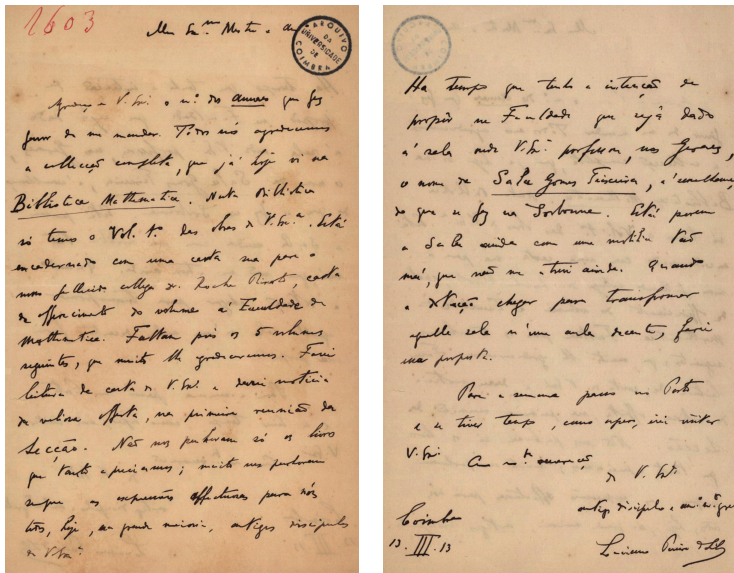 1603
Meu Exmo Mestre e
ARQUIVO DA UNIVERSIDADE DE COIMBRA
Agradeço a V. Exª. o nº. dos Annaes que fez
favor de me mandar. Todos nós agradecemos
a collecção completa, que já hoje vi na
Bibliotheca Mathematica. Nesta Bibliotheca
só temos o Vol. 1º das obras de V. Exª. Está
encadernado com uma carta sua para o
nosso fallecido collega Dr. Rocha Peixoto, carta
de offerecimento do volume á Faculdade de
Mathematica. Faltam pois os 5 volumes
seguintes, que muito lhe agradecemos. Farei
leitura da carta de V. Exª. e darei noticia
da valiosa offerta, na primeira reunião da
Secção. Não nos penhoram só os livros
que tanto apreciamos; muito nos penhoram
as expressões affectuosas para nós
todos, hoje, na grande maioria, antigos discipulos
de V. Exª.
Ha tempo que tenho a intenção de
propôr na Faculdade que seja dado
á sala onde V. Exª. professou, nos Geraes,
o nome de Sala Gomes Teixeira, á semelhança
do que se fez na Sorbonne. Está porem
a Sala ainda com uma mobilia tão
má, que não me atrevi ainda. Quando
a dotação chegar para transformar
aquella sala n'uma aula decente, farei
essa proposta.
Para a semana passo no Porto
e se tiver tempo, como espero, irei visitar
V. Exª.
Com
de V. Exª.
antigo discipulo e
Coimbra
13. III. 13
Luciano Pereira da Silva